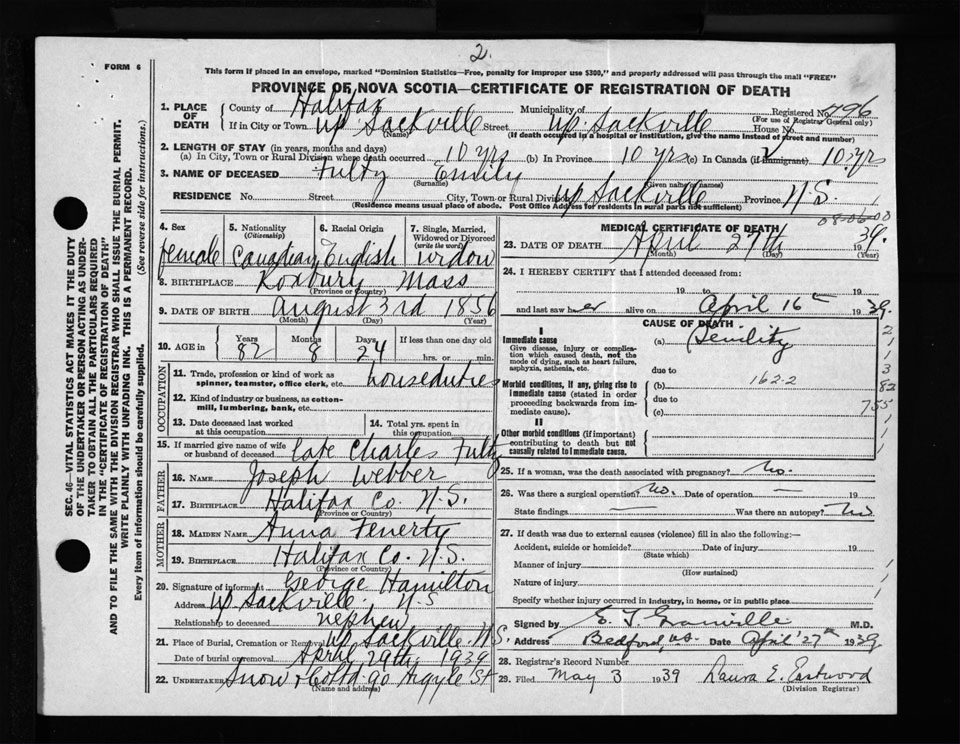 2.
FORM 6
This form if placed in an envelope, marked "Dominion Statistics—Free, penalty for improper use $300," and properly addressed will pass through the mail "FREE"
PROVINCE OF NOVA SCOTIA—CERTIFICATE OF REGISTRATION OF DEATH
1. PLACE OF DEATH
County of Halifax Municipality of Registered No. 796
(For use of Registrar General only)
If in City or Town Up Sackville Street Up. Sackville House No.
(Name) (If death occurred in a hospital or institution, give the name instead of street and number)
2. LENGTH OF STAY (in years, months and days)
(a) In City, Town or Rural Division where death occurred 10 yrs (b) In Province 10 yrs (c) In Canada (if immigrant) 10 yrs
3. NAME OF DECEASED Fultz Emily
(Surname) (Given name or names)
RESIDENCE No. Street City, Town or Rural Division Up Sackville Province N.S.
(Residence means usual place of abode. Post Office Address for residents in rural parts not sufficient)
4. Sex 5. Nationality (Citizenship) 6. Racial Origin 7. Single, Married, Widowed or Divorced (write the word)
female Canadian English widow
8. BIRTHPLACE Roxbury Mass
(Province or Country)
9. DATE OF BIRTH August 3rd 1856
(Month) (Day) (Year)
10. AGE in Years Months Days If less than one day old
82 8 24 hrs. or min.
OCCUPATION
11. Trade, profession or kind of work as spinner, teamster, office clerk, etc. houseduties
12. Kind of industry or business, as cotton-mill, lumbering, bank, etc.
13. Date deceased last worked at this occupation
14. Total yrs. spent in this occupation
15. If married give name of wife or husband of deceased Late Charles Fultz
FATHER
16. NAME Joseph Webber
17. BIRTHPLACE Halifax Co N.S.
(Province or Country)
MOTHER
18. MAIDEN NAME Anna Fenerty
19. BIRTHPLACE Halifax Co. N.S.
(Province or Country)
20. Signature of informant George Hamilton
Address Up Sackville N S
Relationship to deceased nephew
21. Place of Burial, Cremation or Removal Up Sackville N.S.
Date of burial or removal April 29th 1939
22. UNDERTAKER Snow & Co Ltd 90 Argyle St
(Name and address)
08-06-00
MEDICAL CERTIFICATE OF DEATH
23. DATE OF DEATH April 27th 1939.
(Month) (Day) (Year)
24. I HEREBY CERTIFY that I attended deceased from:
19 to 19
and last saw her alive on April 16th 1939.
CAUSE OF DEATH
I
Immediate cause (a) Senility
Give disease, injury or complication which caused death, not the mode of dying, such as heart failure, asphyxia, asthenia, etc.
due to
Morbid conditions, if any, giving rise to immediate cause (stated in order proceeding backwards from immediate cause).
(b) 162-2
due to
(c)
II
Other morbid conditions (if important) contributing to death but not causally related to immediate cause.
25. If a woman, was the death associated with pregnancy? No.
26. Was there a surgical operation? No. Date of operation — 19
State findings — Was there an autopsy? No
27. If death was due to external causes (violence) fill in also the following:—
Accident, suicide or homicide? Date of injury 19
(State which)
Manner of injury
(How sustained)
Nature of injury
Specify whether injury occurred in industry, in home, or in public place
Signed by E. T. Granville M.D.
Address Bedford, N.S. Date April 27th 1939
28. Registrar's Record Number
29. Filed May 3 1939 Laura E. Eastwood
(Division Registrar)
SEC. 46—VITAL STATISTICS ACT MAKES IT THE DUTY
OF THE UNDERTAKER OR PERSON ACTING AS UNDER-
TAKER TO OBTAIN ALL THE PARTICULARS REQUIRED
IN THE "CERTIFICATE OF REGISTRATION OF DEATH"
AND TO FILE THE SAME WITH THE DIVISION REGISTRAR WHO SHALL ISSUE THE BURIAL PERMIT.
WRITE PLAINLY WITH UNFADING INK. THIS IS A PERMANENT RECORD.
Every item of information should be carefully supplied. (See reverse side for instructions.)